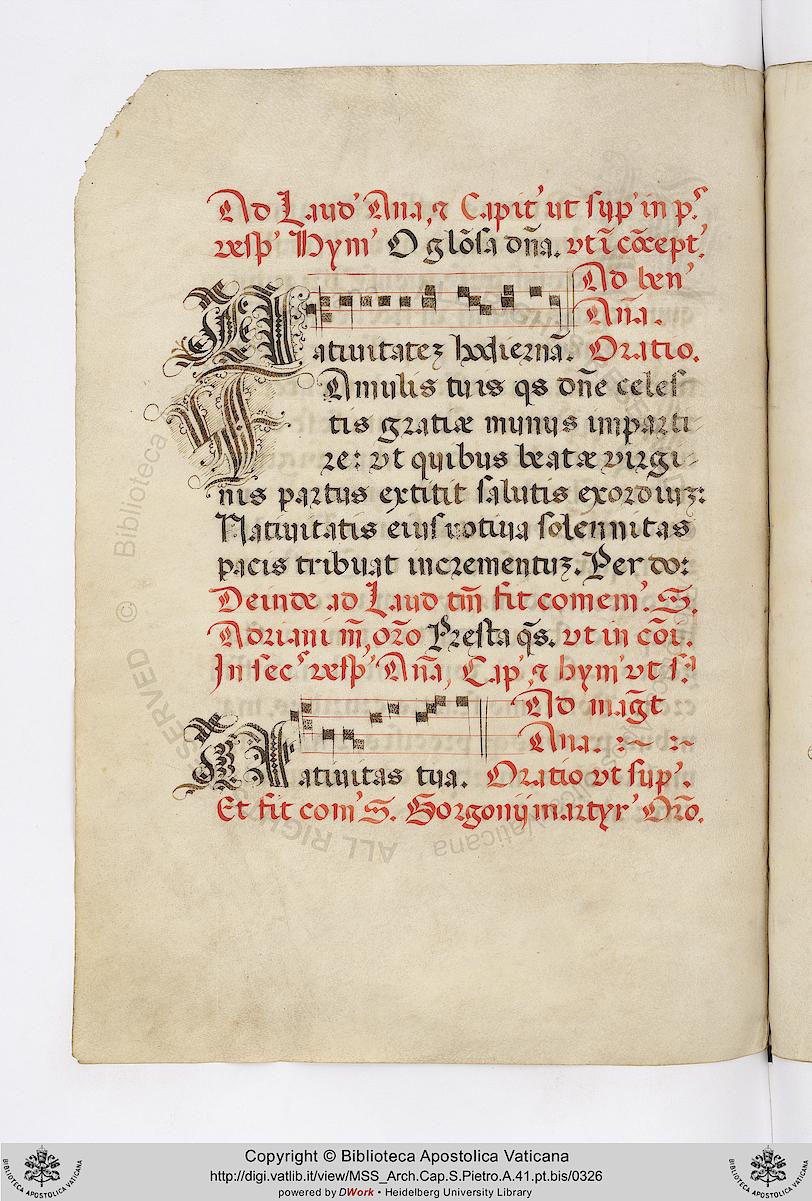 Ad Laud' Ana, ⁊ Capit' ut sup' in p.ˢ
vesp' Hym' O glõsa dña. vt ĩ cõcept'.
Ad ben'
Aña.
Natiuitatez hodiernã. Oratio.
Famulis tuis qs dñe celes
tis gratiæ munus imparti
re: vt quibus beatæ virgi-
nis partus extitit salutis exordiuz:
Natiuitatis eius uotiua solennitas
pacis tribuat incrementuz. Per do:
Deinde ad Laud tm̃ fit comem'. S.
Adriani m̃, orõ Presta qs. vt in cõi.
In secˢ vesp' Aña, Cap', ⁊ hym' vt sꝰ
Ad mag̃t
Ana. :~ :~
Natiuitas tua. Oratio vt sup'.
Et fit com' S. Gorgonij martyr' Orõ.
© Biblioteca Apostolica Vaticana
ALL RIGHTS RESERVED
Copyright © Biblioteca Apostolica Vaticana
http://digi.vatlib.it/view/MSS_Arch.Cap.S.Pietro.A.41.pt.bis/0326
powered by DWork • Heidelberg University Library
BIBLIOTECA APOSTOLICA VATICANA
BIBLIOTECA APOSTOLICA VATICANA